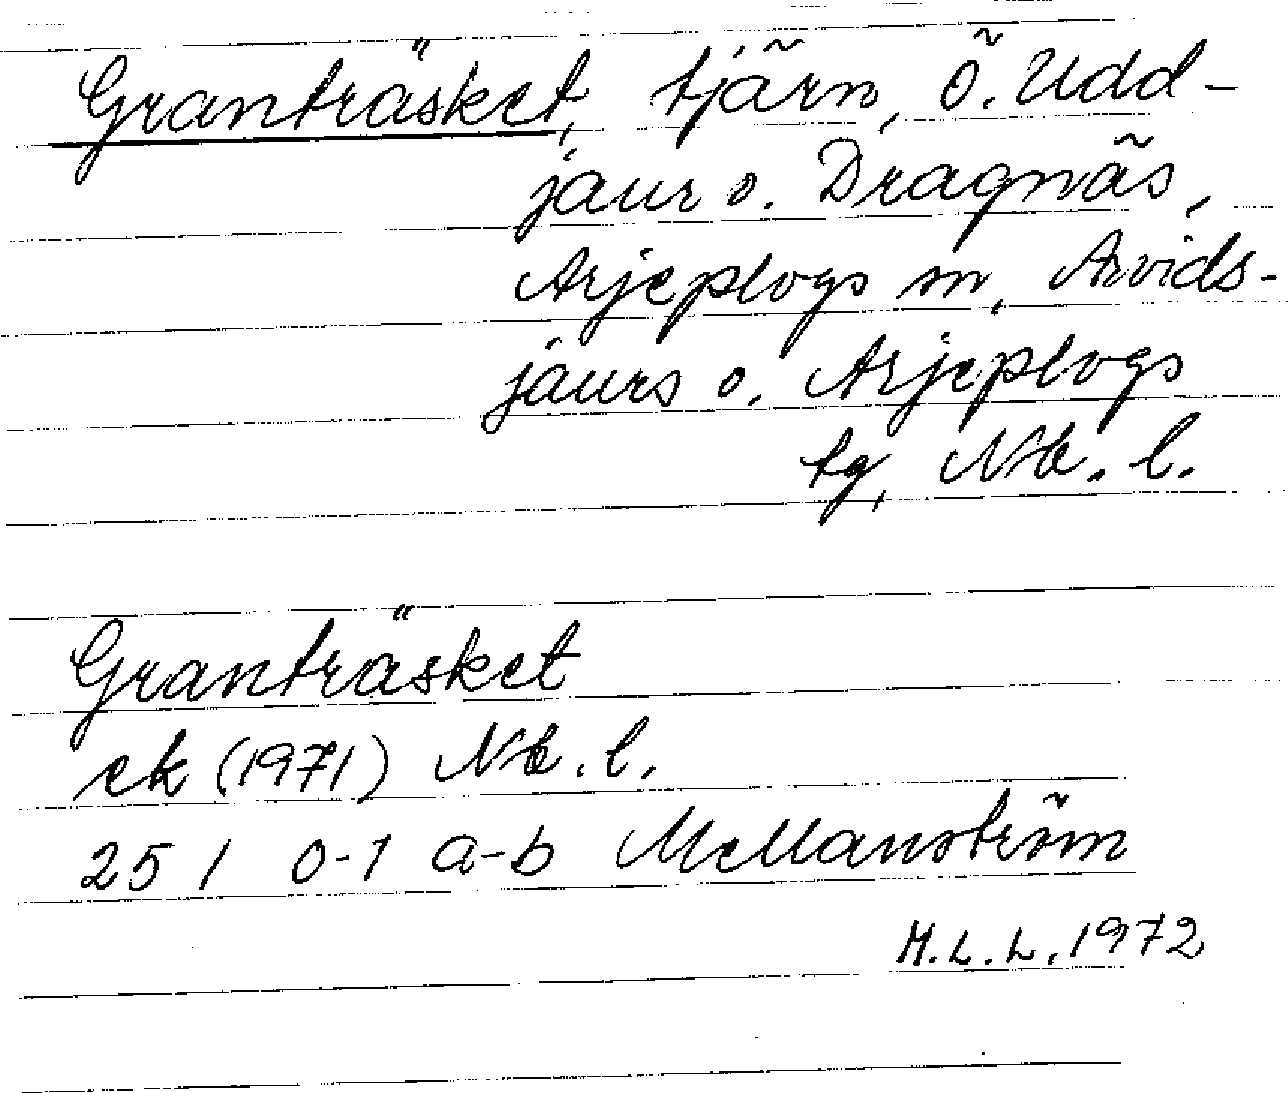 Granträsket, tjärn, ö. Udd-
jaur o. Dragnäs,
Arjeplogs sn, Arvids-
jaurs o. Arjeplogs
tg, Nb. l.
Granträsket
ek (1971) Nb. l.
25 I 0-1 a-b Mellanström
M.L.L. 1972